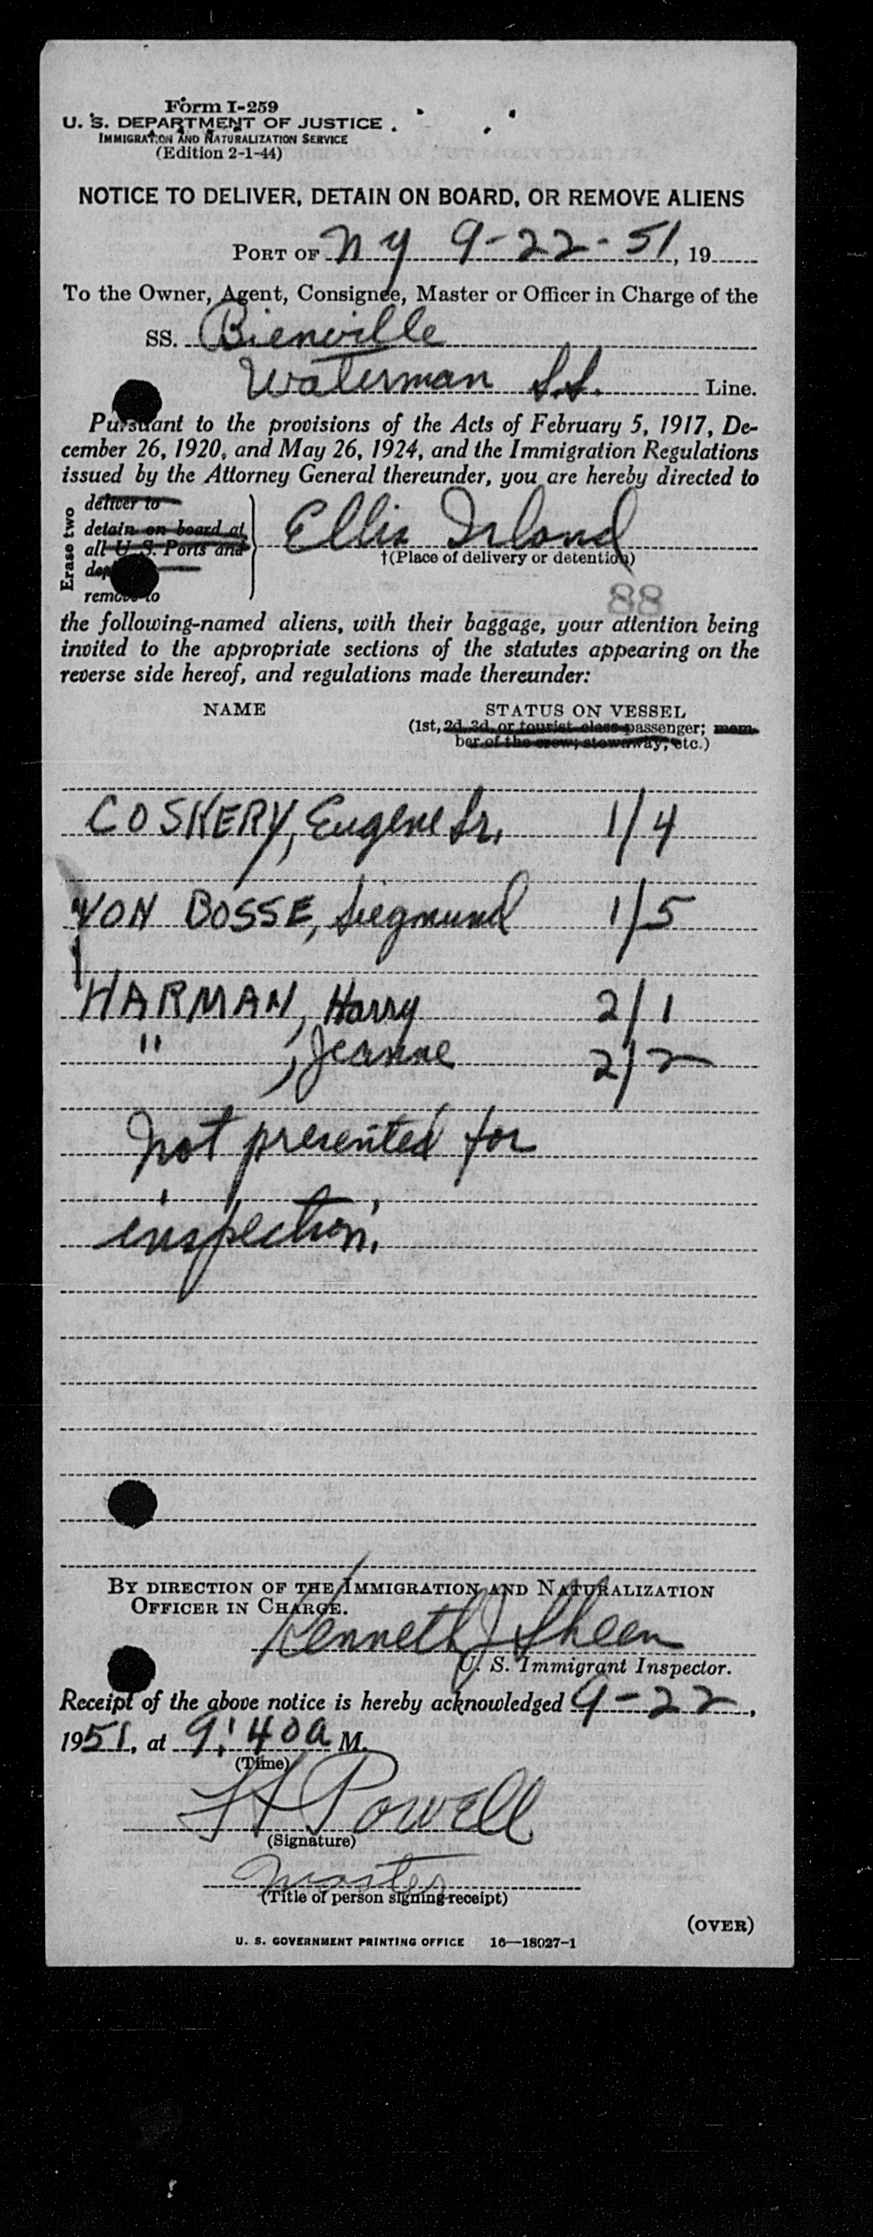 Form I-259
U. S. DEPARTMENT OF JUSTICE
IMMIGRATION AND NATURALIZATION SERVICE
(Edition 2-1-44)
NOTICE TO DELIVER, DETAIN ON BOARD, OR REMOVE ALIENS
PORT OF NY 9-22-51, 19
To the Owner, Agent, Consignee, Master or Officer in Charge of the
SS. Bienville
Waterman S.S. Line.
Pursuant to the provisions of the Acts of February 5, 1917, De-
cember 26, 1920, and May 26, 1924, and the Immigration Regulations
issued by the Attorney General thereunder, you are hereby directed to
Erase two
deliver to
detain on board at
all U. S. Ports and
remove to
Ellis Island
†(Place of delivery or detention)
88
the following-named aliens, with their baggage, your attention being
invited to the appropriate sections of the statutes appearing on the
reverse side hereof, and regulations made thereunder:
NAME STATUS ON VESSEL
(1st, 2d, 3d, or tourist class passenger; mem-
ber of the crew; stowaway; etc.)
COSKERY, Eugene Sr. 1/4
VON BOSSE, Siegmund 1/5
HARMAN, Harry 2/1
" , Jeanne 2/2
Not presented for
inspection.
BY DIRECTION OF THE IMMIGRATION AND NATURALIZATION
OFFICER IN CHARGE.
Kenneth J Sheen
U. S. Immigrant Inspector.
Receipt of the above notice is hereby acknowledged 9-22,
1951, at 9:40a M.
(Time)
Powell
(Signature)
Master
(Title of person signing receipt)
(OVER)
U. S. GOVERNMENT PRINTING OFFICE 16—18027-1